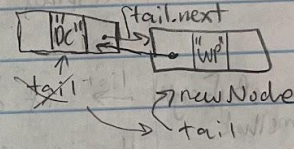 tail.next
"DC" "WP"
tail newNode
tail